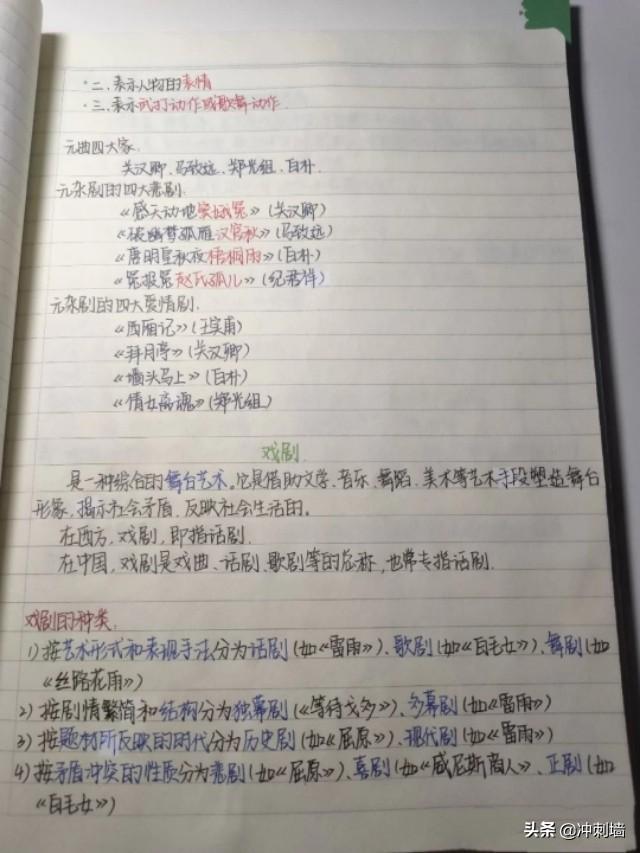 ·二、表示人物的表情
·三、表示武打动作或歌舞动作.
元曲四大家.
关汉卿、马致远、郑光组、白朴.
元杂剧的四大悲剧.
《感天动地窦娥冤》(关汉卿)
《破幽梦孤雁汉宫秋》(马致远)
《唐明皇秋夜梧桐雨》(白朴)
《冤报冤赵氏孤儿》(纪君祥)
元杂剧的四大爱情剧.
《西厢记》(王实甫)
《拜月亭》(关汉卿)
《墙头马上》(白朴)
《倩女离魂》(郑光组)
戏剧.
是一种综合的舞台艺术。它是借助文学、音乐、舞蹈、美术等艺术手段塑造舞台
形象,揭示社会矛盾、反映社会生活的。
在西方,戏剧,即指话剧.
在中国,戏剧是戏曲、话剧、歌剧等的总称,也常专指话剧.
戏剧的种类.
1)按艺术形式和表现手法分为话剧(如《雷雨》)、歌剧(如《白毛女》)、舞剧(如
《丝路花雨》)
2)按剧情繁简和结构分为独幕剧(《等待戈多》)、多幕剧(如《雷雨》)
3)按题材所反映的时代分为历史剧(如《屈原》)、现代剧(如《雷雨》)
4)按矛盾冲突的性质分为悲剧(如《屈原》)、喜剧(如《威尼斯商人》、正剧(如
《白毛女》)
头条 @冲刺墙